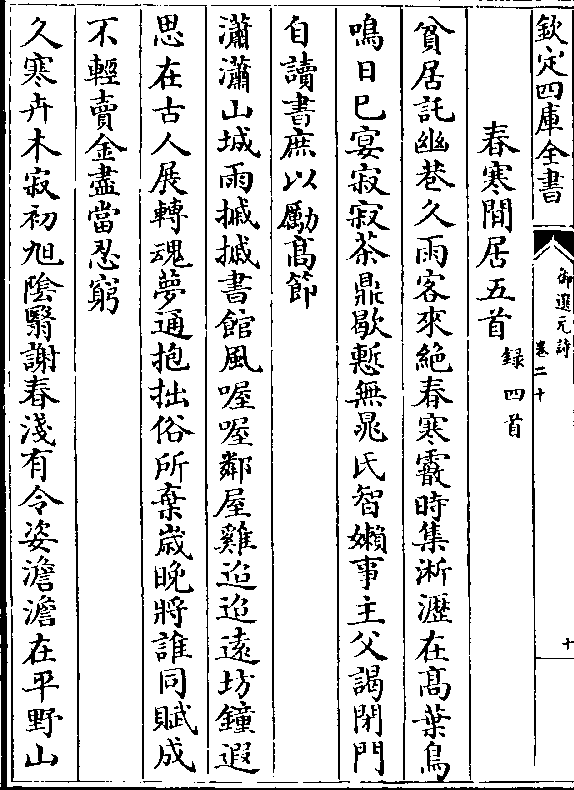 欽定四庫全書
御選元詩
卷二十
十
春寒閒居五首
録四首
貧居託幽巷久雨客來絶春寒霰時集淅瀝在髙葉鳥
鳴日巳宴寂寂茶鼎歇慙無晁氏智嬾事主父謁閉門
自讀書庶以勵髙節
瀟瀟山城雨摵摵書館風喔喔鄰屋雞迢迢逺坊鐘遐
思在古人展轉魂夢通抱拙俗所棄歳晩將誰同賦成
不輕賣金盡當忍窮
久寒卉木寂初旭陰翳謝春淺有令姿澹澹在平野山